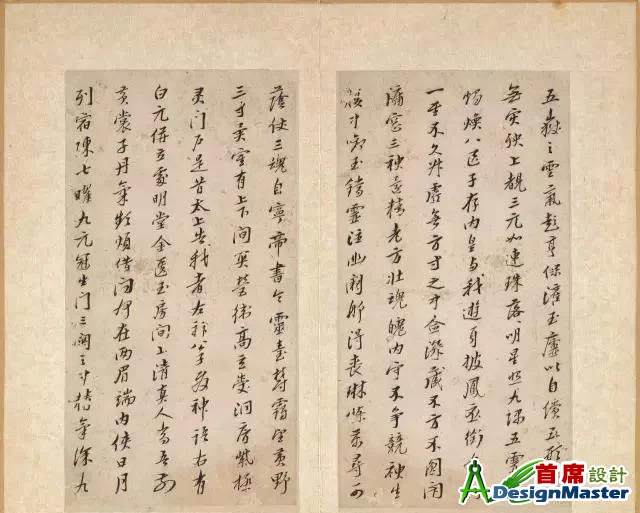 五嶽之雲氣彭亨保灌玉廬以自償五形
無災殃上覩三元如連珠落明景照九隅五雲
燭煥八區子存內皇與我遊身披鳳衣銜
一至不久升虛無方寸之中念深藏不方不圓閉
牖窗三神還精老方壯魂魄內守不爭競神生
腹中銜玉鐺靈注幽闕那得喪琳條萬尋可
蔭仗三魂自寧帝書命靈臺鬱靄望黃野
三寸異室有上下間關營衛高玄受洞房紫極
灵门户是昔太上告我者左神公子發神語右有
白元併立處明堂金匱玉房間上清真人當吾前
黃裳子丹氣頻煩借問何在兩眉端內俠日月
列宿陳七曜九元冠生門三關之中精氣深九
首席設計
DesignMaster